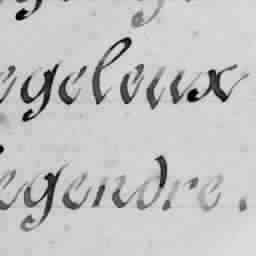 egeleux
egendre.